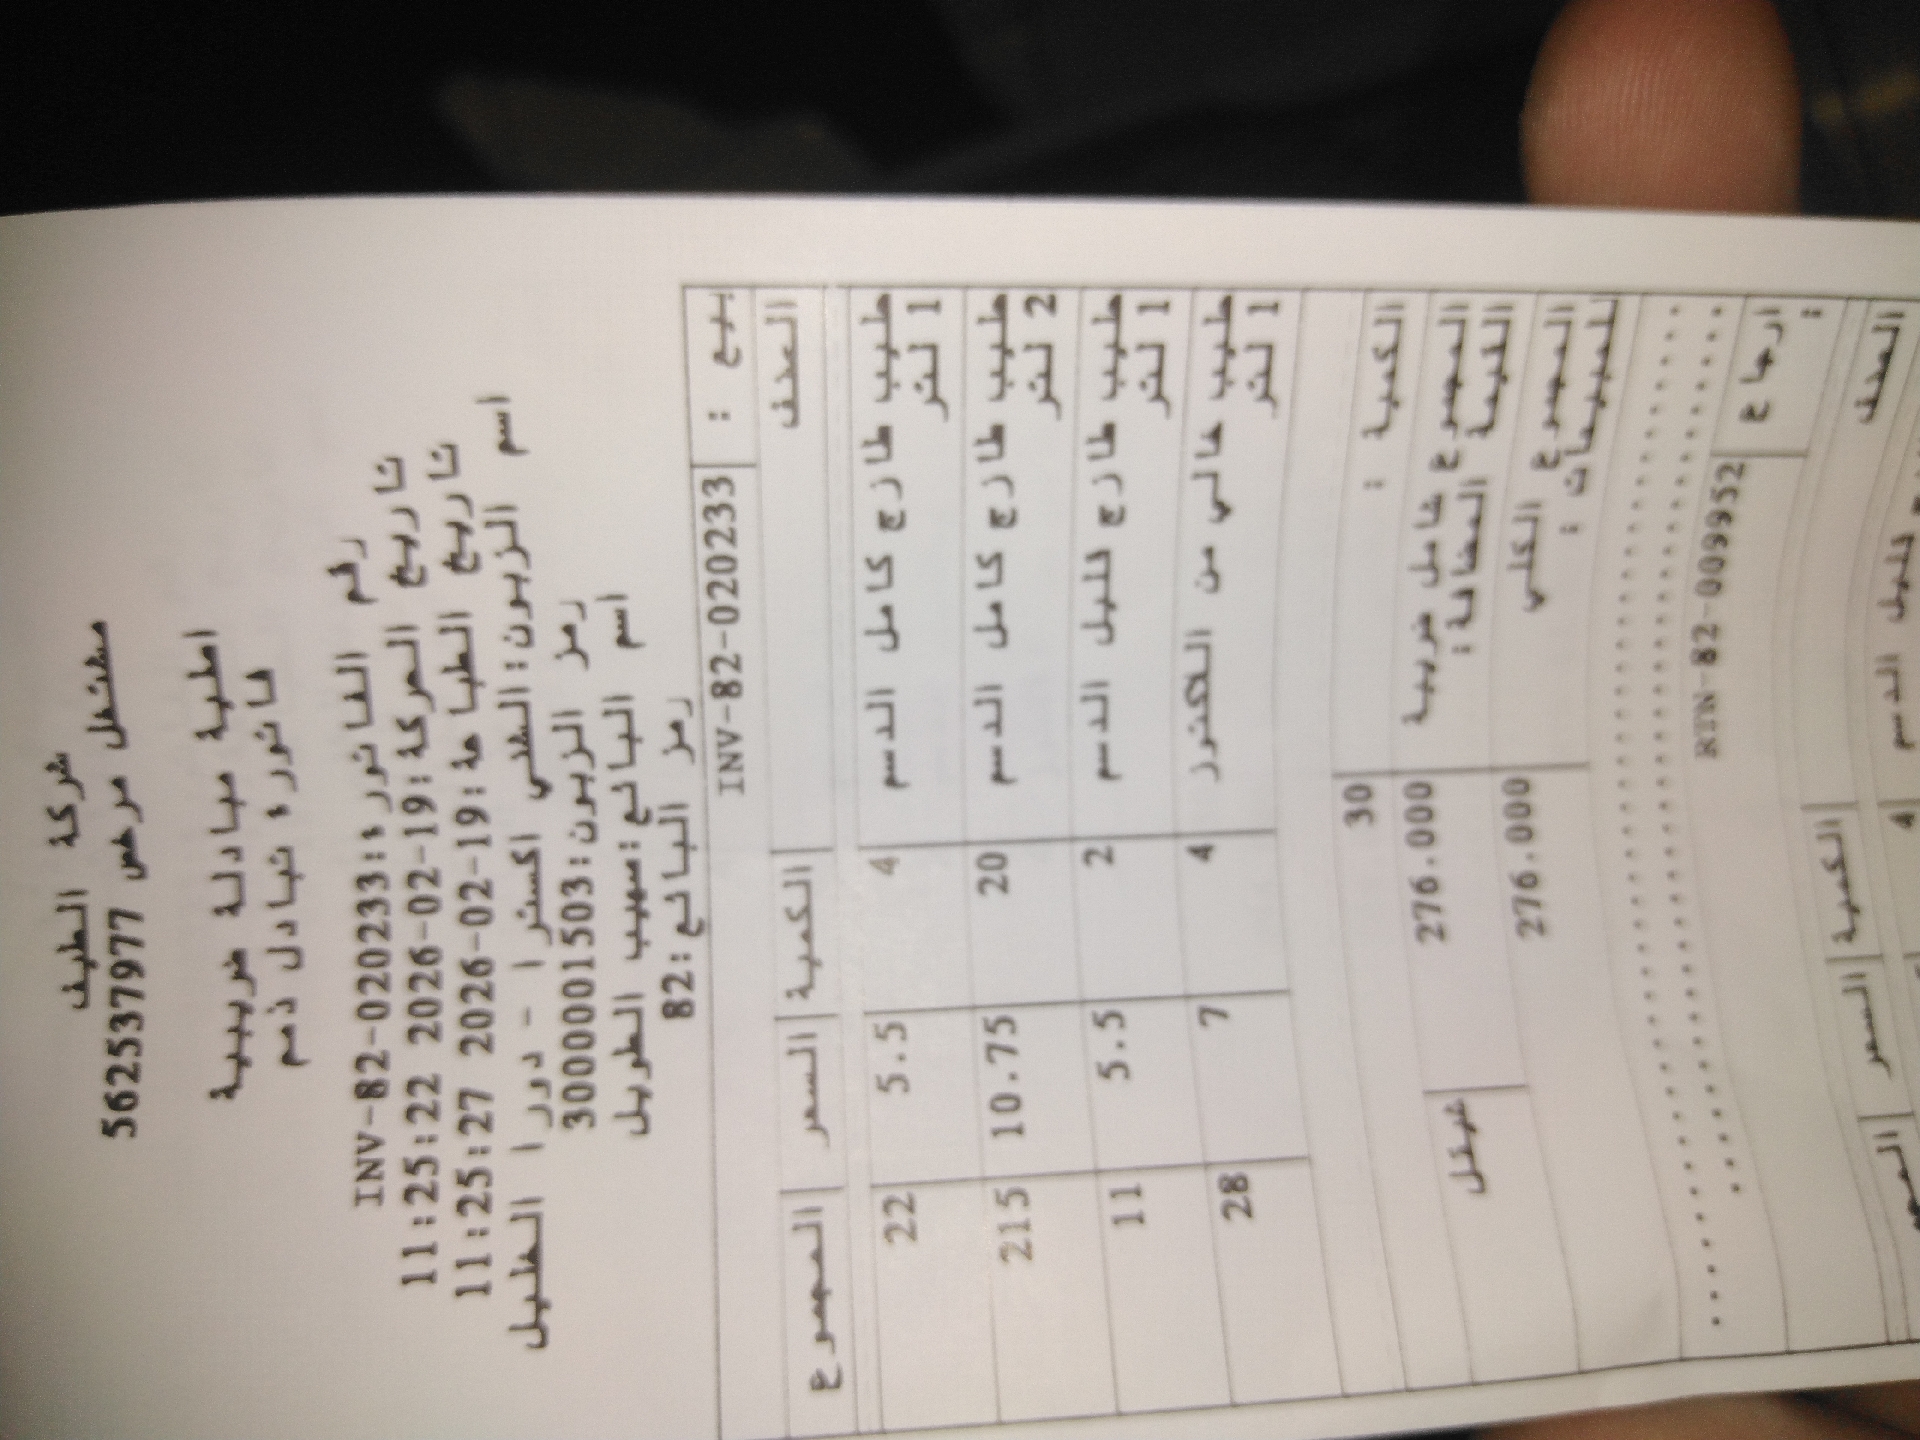 شركة الطيف
مشتغل مرخص 562537977
اصلية مبادلة ضريبية
فاتورة تبادل ذمم
رقم الفاتورة:INV-82-020233
تاريخ الحركة:19-02-2026 11:25:22
تاريخ الطباعة:19-02-2026 11:25:27
اسم الزبون:الشني اكسترا - دورا الخليل
رمز الزبون:3000001503
اسم البائع:صهيب الطويل
رمز البائع:82
بيع : INV-82-020233
الصنف الكمية السعر المجموع
حليب طازج كامل الدسم 1 لتر 4 5.5 22
حليب طازج كامل الدسم 2 لتر 20 10.75 215
حليب طازج قليل الدسم 1 لتر 2 5.5 11
حليب خالي من اللاكتوز 1 لتر 4 7 28
الكمية : 30
المجموع شامل ضريبة القيمة المضافة: 276.000 شيقل
المجموع الكلي للمبيعات : 276.000
ارجاع : RTN-82-009952
الصنف الكمية السعر
قليل الدسم 4